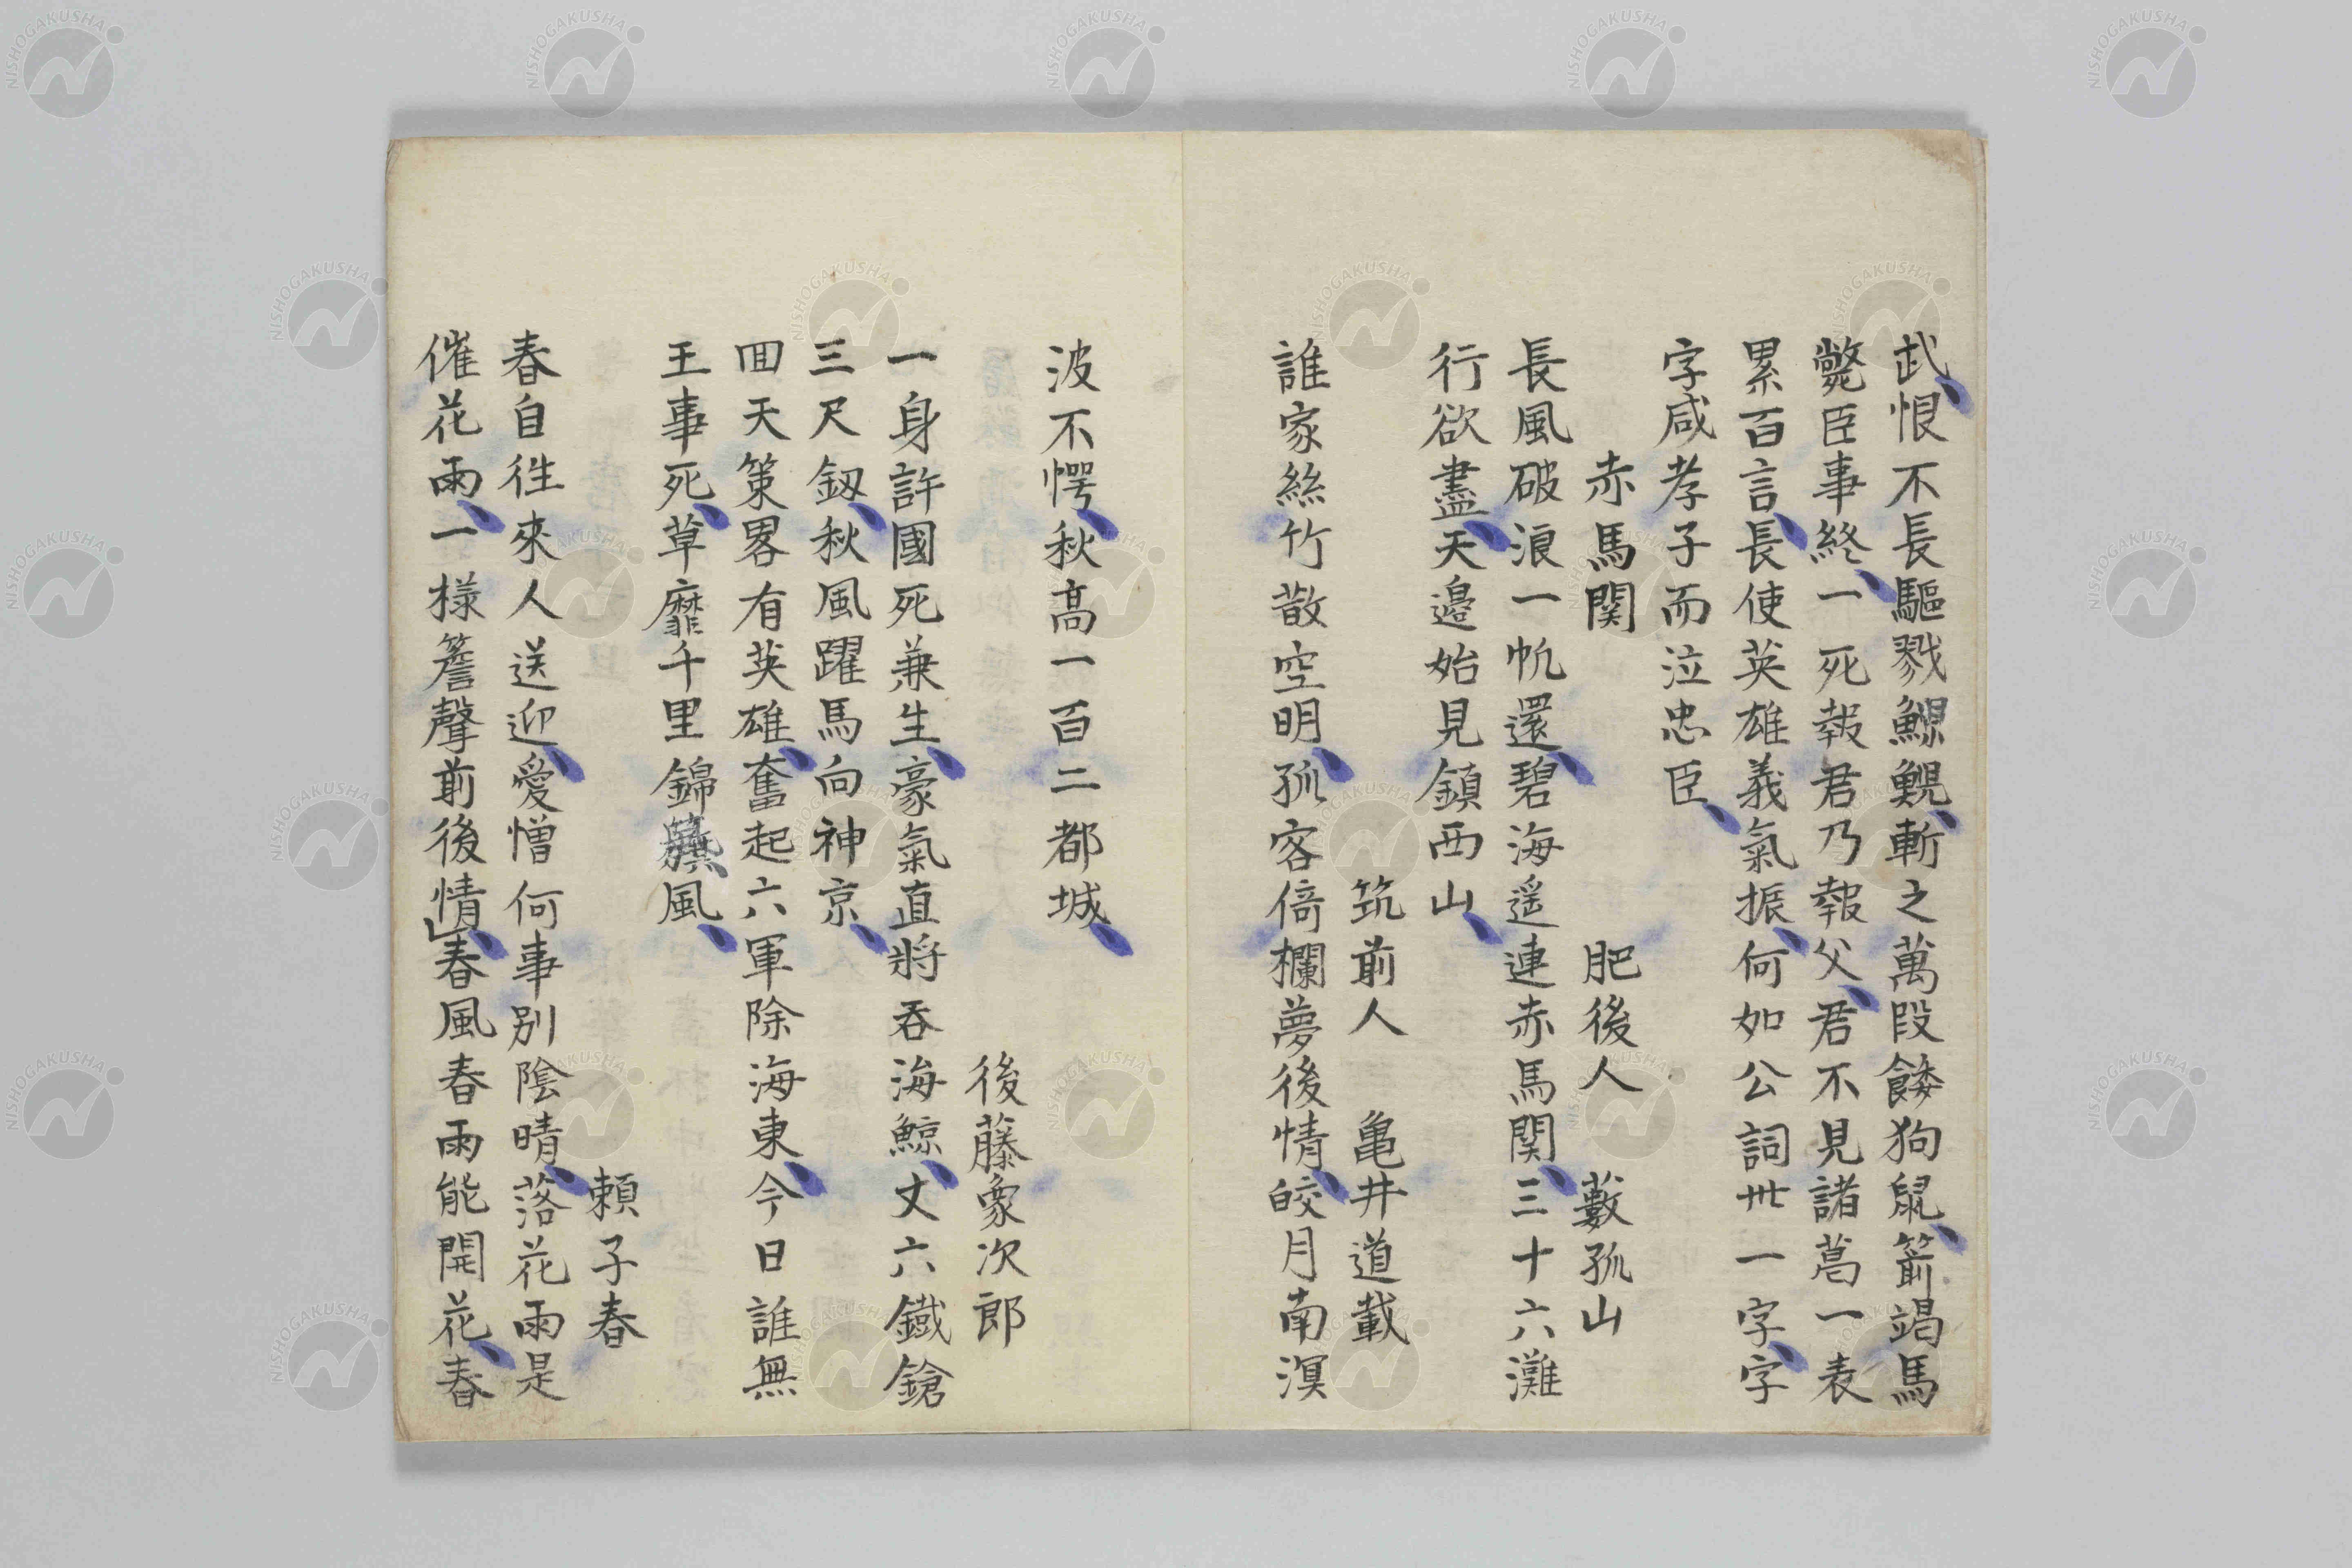 武、恨不長驅戮鯤鯢、斬之萬段餧狗鼠、箭竭馬
斃臣事終、一死報君乃報父、君不見諸葛一表
累百言、長使英雄義氣振、何如公詞卅一字、字
字咸孝子而泣忠臣、
赤馬関　肥後人　藪孤山
長風破浪一帆還、碧海遥連赤馬関、三十六灘
行欲盡、天邉始見鎮西山、
筑前人　亀井道載
誰家絲竹散空明、孤客倚欄夢後情、皎月南溟
波不愕、秋髙一百二都城、
後藤象次郎
一身許國死兼生、豪氣直將吞海鯨、丈六鐵鎗
三尺釼、秋風躍馬向神京、
回天策畧有英雄、奮起六軍除海東、今日誰無
王事死、草靡千里錦旗風、
頼子春
春自徃來人送迎、愛憎何事別陰晴、落花雨是
催花雨、一様簷聲前後情、」春風春雨能開花、春
NISHOGAKUSHA